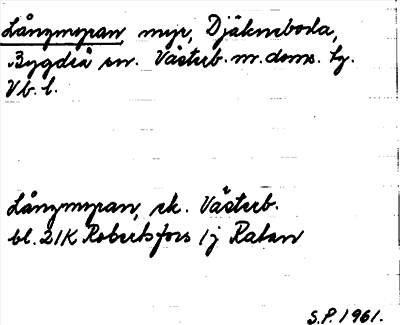 Långmyran, myr, Djäkneboda,
Bygdeå sn. Västerb. m. doms. hg.
Vb. l.
Långmyran, sk. Västerb.
bl. 21K Robertsfors 1j Ratan
S.P. 1961.